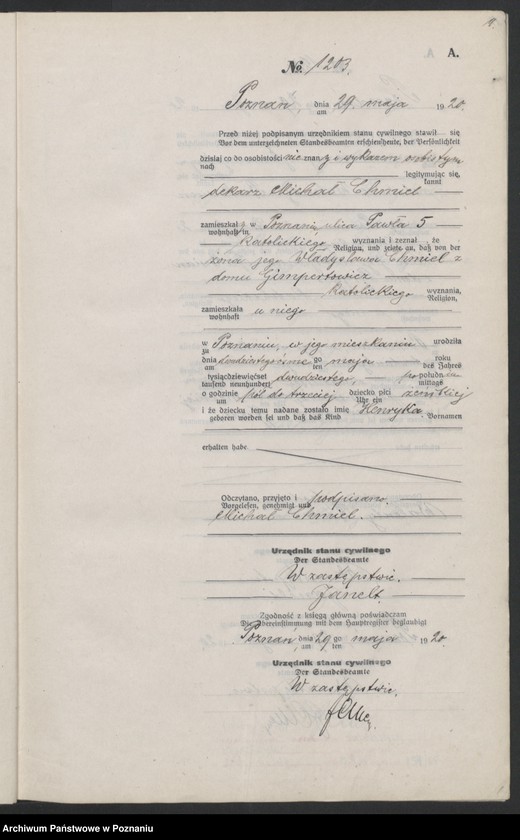 A.
№ 1203.
Poznań, dnia 29. maja 1920.
am
Przed niżej podpisanym urzędnikiem stanu cywilnego stawił się
Vor dem unterzeichneten Standesbeamten erschien heute, der Persönlichkeit
dzisiaj co do osobistości nie znany i wykazem osobistym
nach
legitymując się,
kannt
dekarz Michał Chmiel
zamieszkał y w Poznaniu, ulica Pawła 5
wohnhaft in
katolickiego wyznania i zeznał, że
Religion, und zeigte an, daß von der
żona jego Władysława Chmiel z
domu Gimpertowicz
katolickiego wyznania,
Religion,
zamieszkała u niego
wohnhaft
w Poznaniu, w jego mieszkaniu urodziła
zu
dnia go maja roku
am ten des Jahres
tysiącdziewięćset dwudziestego, po połudn.iu
tausend neunhundert mittags
o godzinie pół do trzeciej dziecko płci żeńskiej
um Uhr ein
i że dziecku temu nadane zostało imię Henryka.
geboren worden sei und daß das Kind Vornamen
erhalten habe
Odczytano, przyjęto i podpisano.
Vorgelesen, genehmigt und
Michał Chmiel.
Urzędnik stanu cywilnego
Der Standesbeamte
W zastępstwie.
Janelt
Zgodność z księgą główną poświadczam
Die Übereinstimmung mit dem Hauptregister beglaubigt
Poznań, dnia 29 go maja 1920.
am ten
Urzędnik stanu cywilnego
Der Standesbeamte
W zastępstwie.
Archiwum Państwowe w Poznaniu